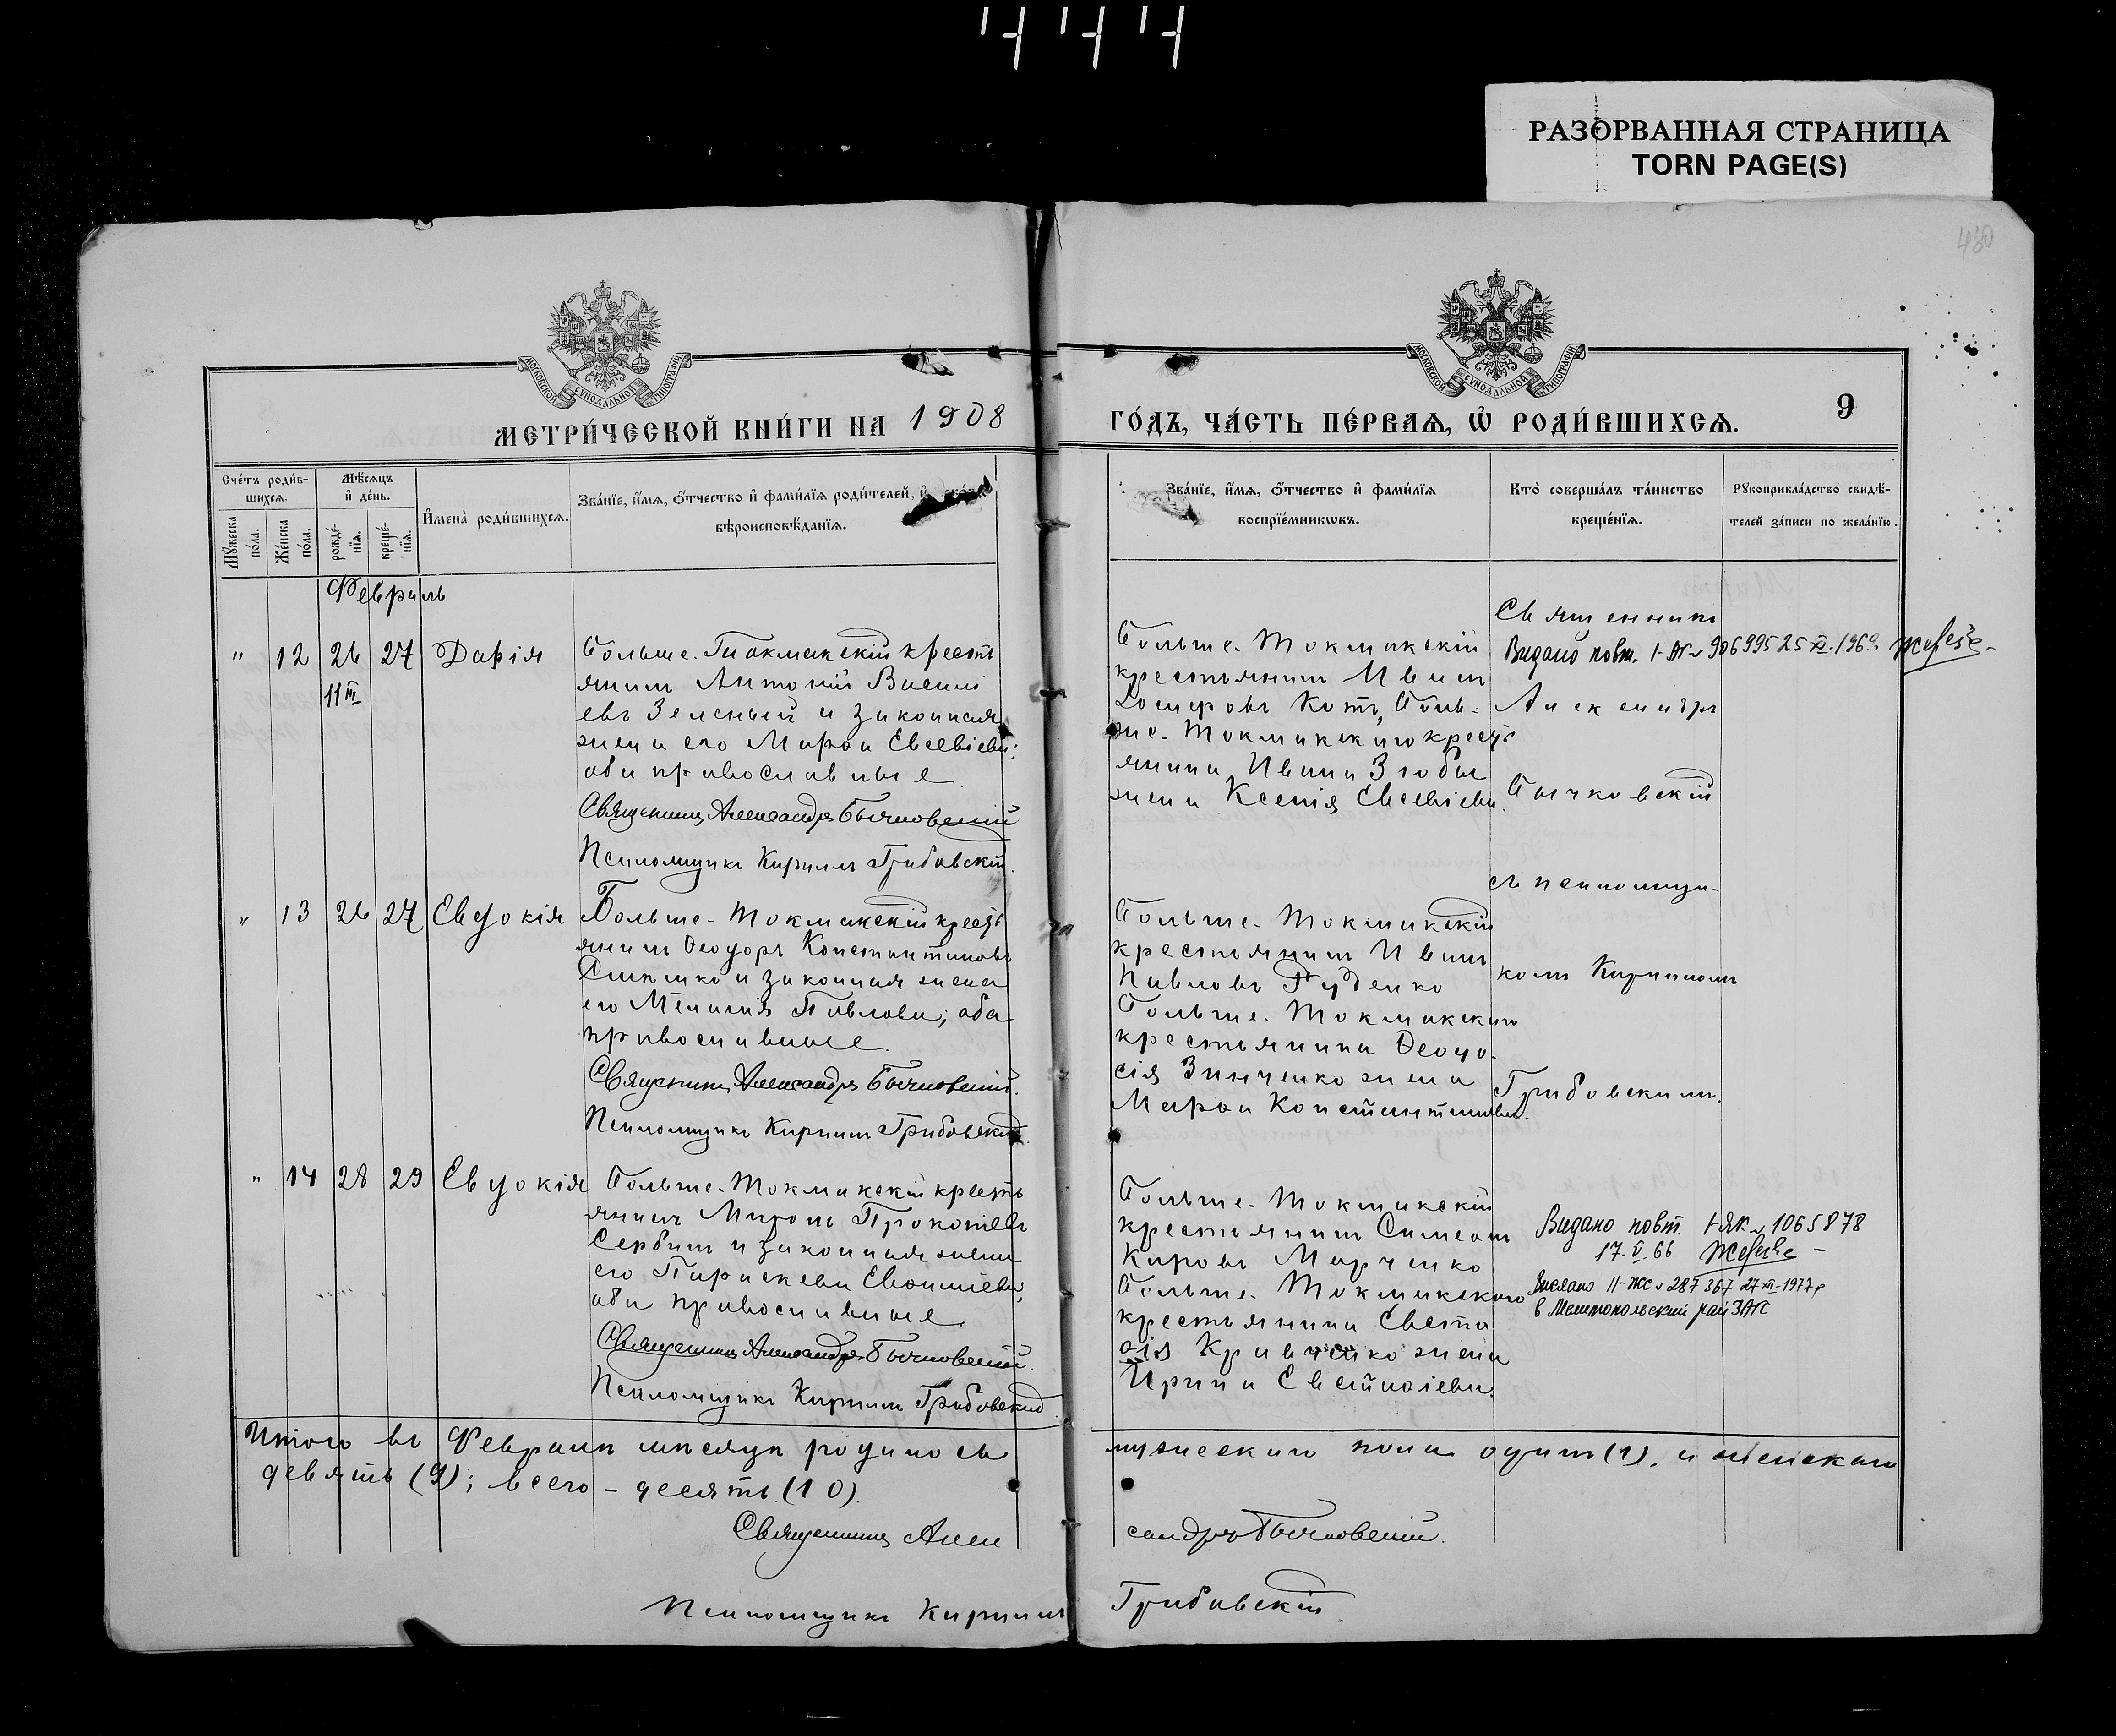 РАЗОРВАННАЯ СТРАНИЦА
TORN PAGE(S)
450
МОСКОВСКОЙ СѴНОДАЛЬНОЙ ТИПОГРАФІИ
МОСКОВСКОЙ СѴНОДАЛЬНОЙ ТИПОГРАФІИ
МЕТРИ́ЧЕСКОЙ КНИ́ГИ НА 1908
ГО́ДЪ, ЧА́СТЬ ПЕ́РВАѦ, Ѽ РОДИ́ВШИХСѦ.
9
Сче́тъ роди́вшихсѧ.
Мꙋ́жеска по́ла.
Же́нска по́ла.
Мѣ́сѧцъ и҆ де́нь.
рожде́нїѧ.
креще́нїѧ.
И҆мена̀ роди́вшихсѧ.
Зва́нїе, и҆́мѧ, ѻ҆́тчество и҆ фами́лїѧ роди́телей, и҆
вѣроисповѣ́данїѧ.
Зва́нїе, и҆́мѧ, ѻ҆́тчество и҆ фами́лїѧ
воспрїе́мникѡвъ.
Кто̀ соверша́лъ та́инство
креще́нїѧ.
Рꙋкоприкла́дство свидѣ́-
телей за́писи по жела́нїю.
Февраль
" 12 26 27 Дарія
11 III
Больше-Токмакскій кресть
янинъ Антоній Василі
евъ Зеленый и законная
жена его Марѳа Евсевіева;
оба православные
Священникъ Александръ Бычковскій
Псаломщикъ Кириллъ Грибовскій.
Больше-Токмакскій
крестьянинъ Иванъ
Іосифовъ Котъ, Боль-
ше-Токмакскаго кресть
янина Ивана Зюбы
жена Ксенія Евсевіева.
Священникъ
Видано повт. I-АГ № 906995 25 XI. 196
Александръ
Бычковскій
съ псаломщи-
комъ Кирилломъ
Грибовскимъ.
" 13 26 27 Евдокія
Больше-Токмакскій кресть
янинъ Ѳеодоръ Константиновъ
и законная жена
его Меланія Павлова; оба
православные.
Священникъ Александръ Бычковскій.
Псаломщикъ Кириллъ Грибовскій.
Больше-Токмакскій
крестьянинъ Иванъ
Павловъ Руденко
Больше-Токмакскаго
крестьянина Ѳеодо-
сія Зинченко жена
Марѳа Константинова.
" 14 28 29 Евдокія
Больше-Токмакскій кресть
янинъ Миронъ Прокопіевъ
Сербинъ и законная жена
его Параскева Евѳиміева;
оба православные
Священникъ Александръ Бычковскій.
Псаломщикъ Кириллъ Грибовскій
Больше-Токмакскій
крестьянинъ Симеонъ
Кировъ Марченко
Больше-Токмакскаго
крестьянина Евста
ѳія Кривченко жена
Ирина Евстаѳіева.
Видано повт. I-ЯК № 1065878
17. V. 66
Выслано II-ЖС № 287367 27 XII-1977 р
в Мелитопольский рай ЗАГС
Итого въ Февралѣ мѣсяцѣ родилось мужескаго пола одинъ (1), и женскаго
девять (9); всего – десять (10).
Священникъ Алек сандръ Бычковскій.
Псаломщикъ Кириллъ Грибовскій.